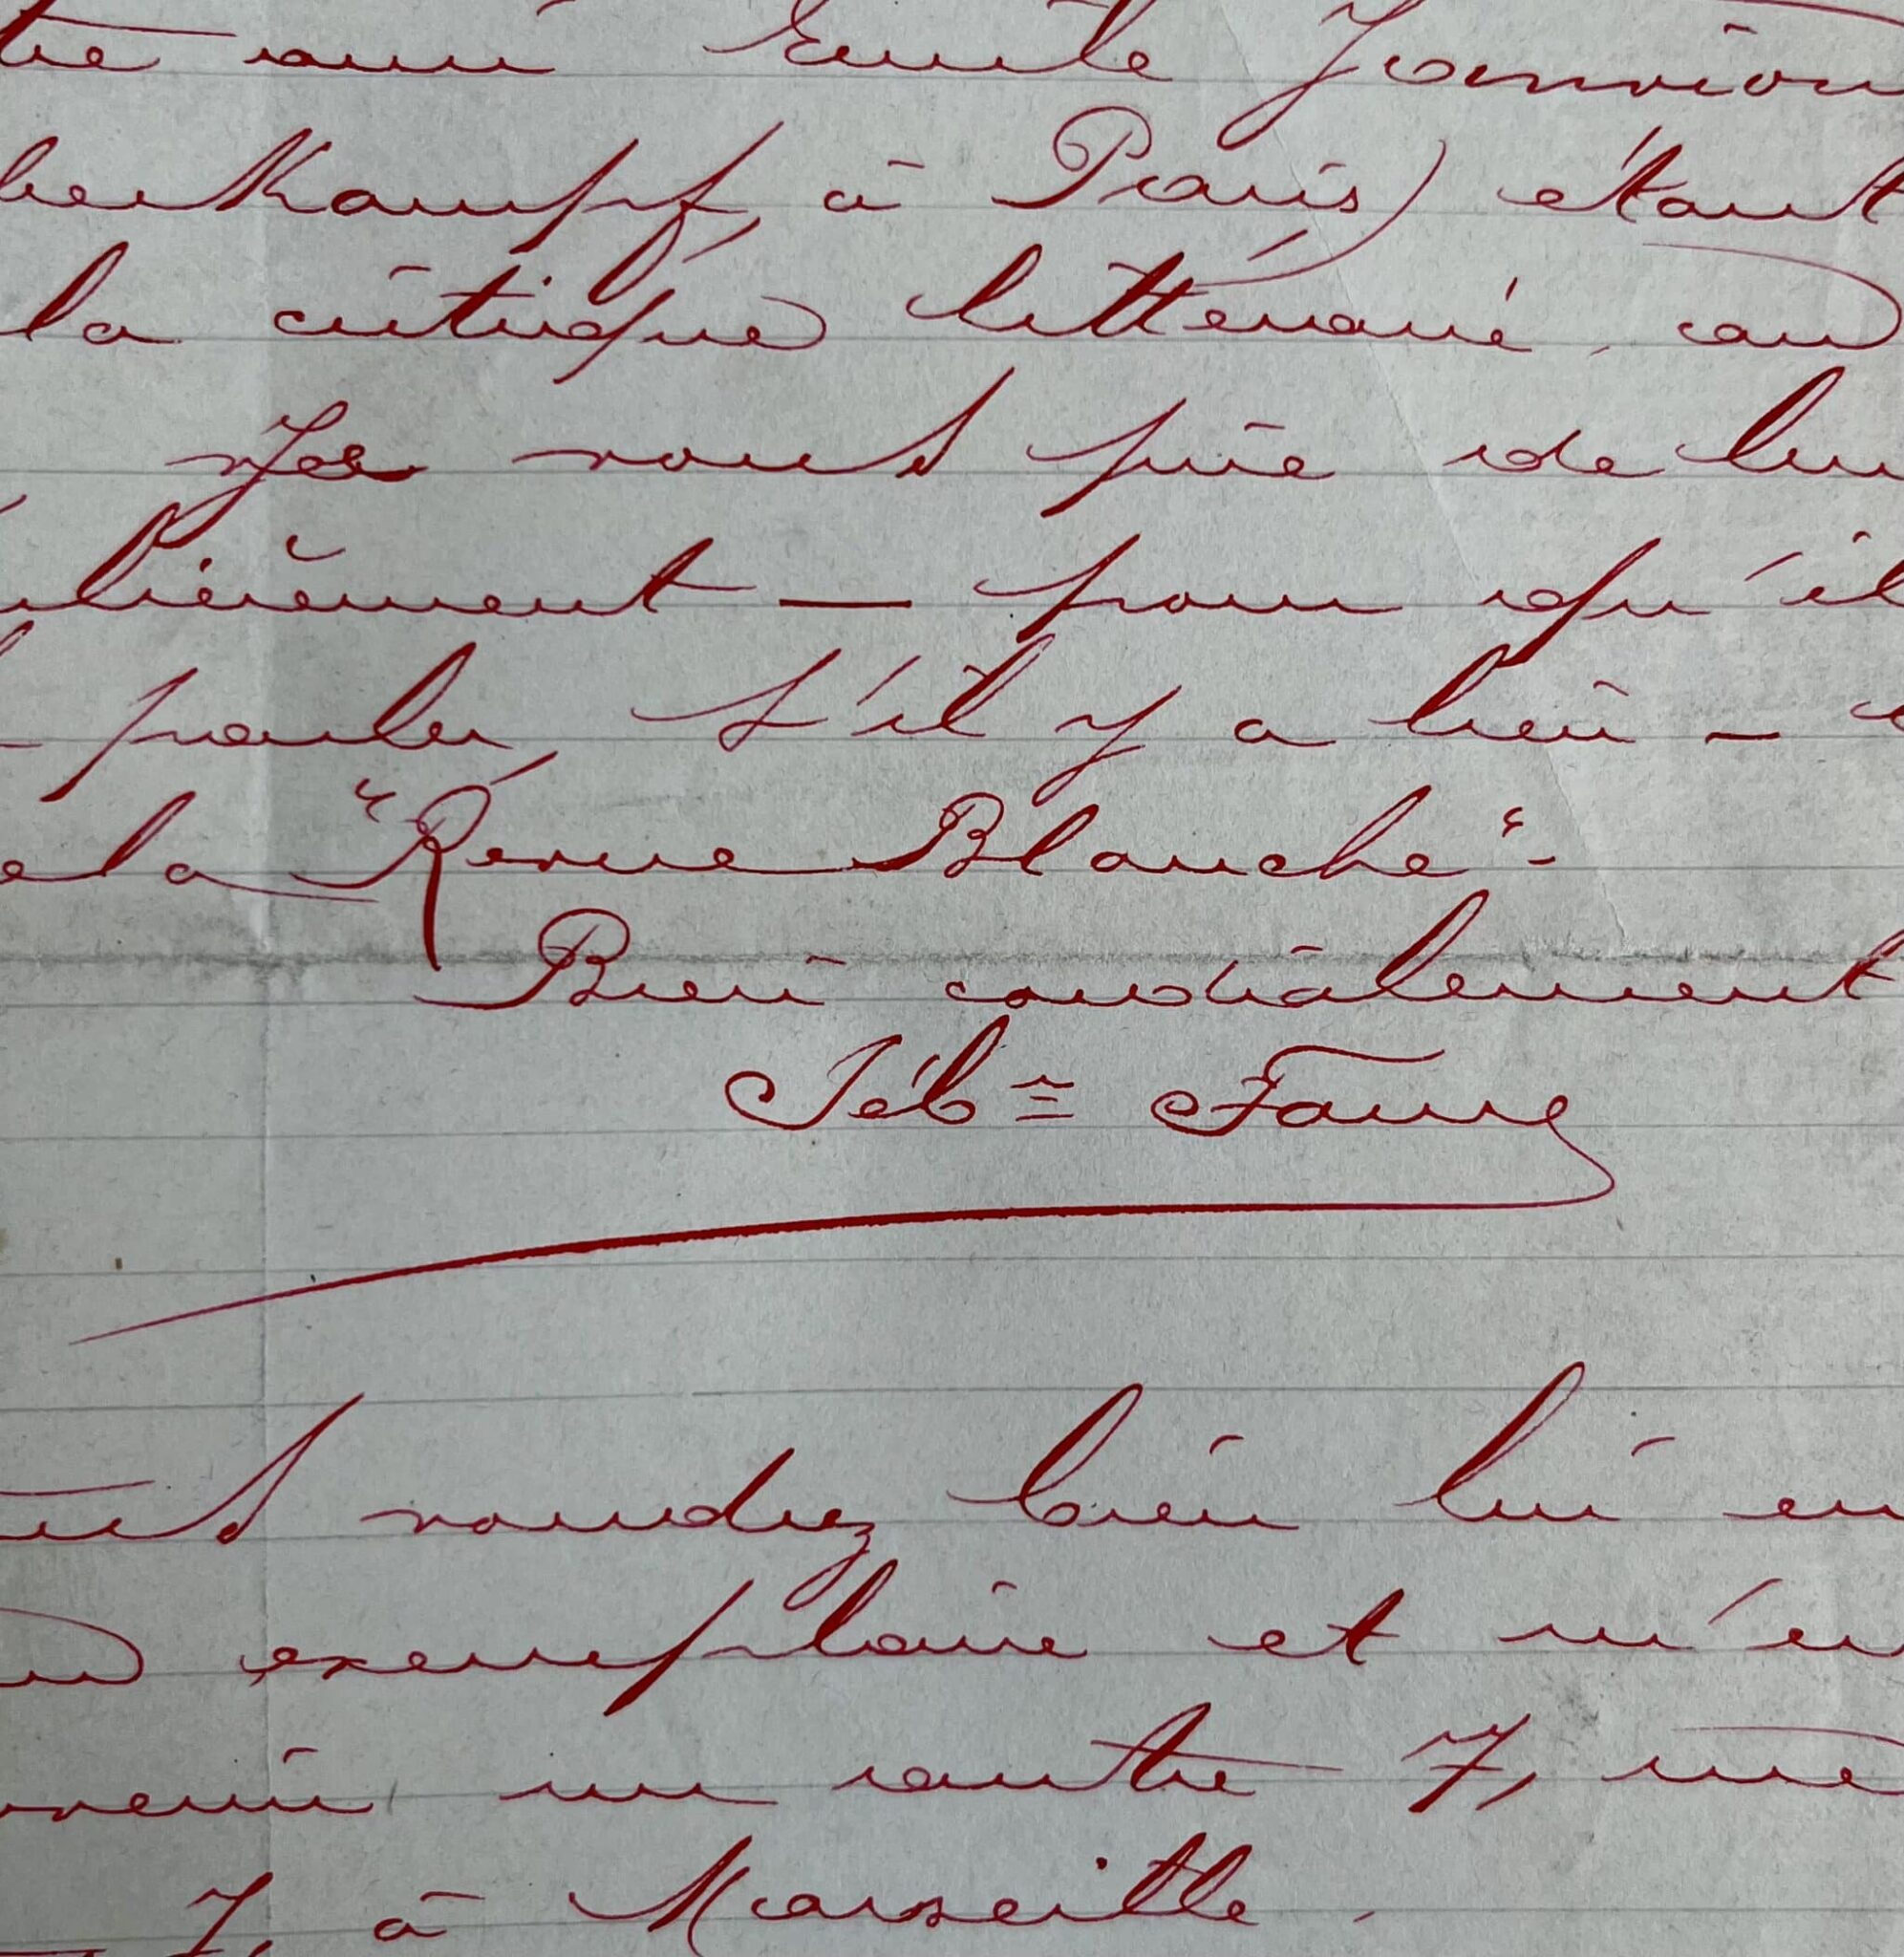 tre ami Emile Janvion
berkampf, à Paris) étant
la critique littéraire, au
Je vous prie de lui
ulièrement — pour qu'il
- parler, s'il y a lieu -
e la "Revue Blanche" -
Bien cordialement
Séb = Faure
ous voudrez bien lui en
exemplaire et m'en
venir un autre 7, rue
7, à Marseille.